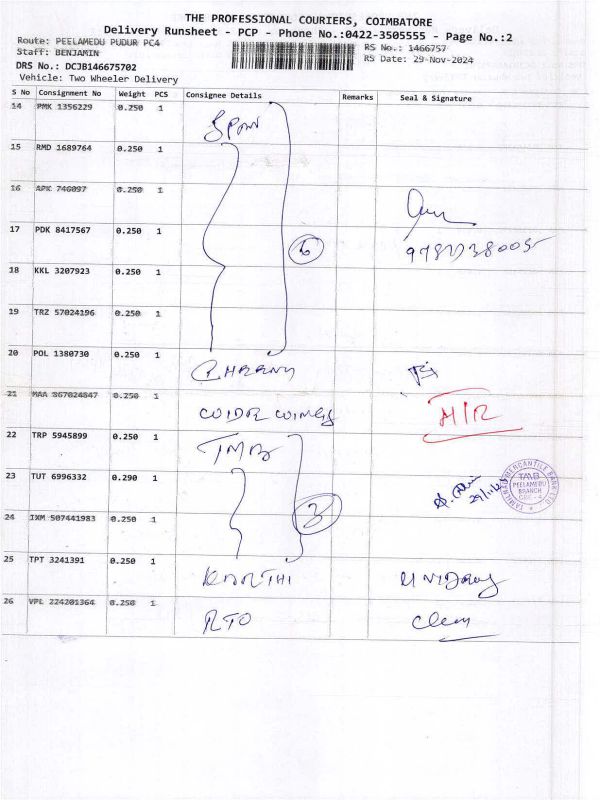 THE PROFESSIONAL COURIERS, COIMBATORE
Delivery Runsheet - PCP - Phone No.:0422-3505555 - Page No.:2
Route: PEELAMEDU PUDUR PC4
RS No.: 1466757
Staff: BENJAMIN
RS Date: 29-Nov-2024
DRS No.: DCJB146675702
Vehicle: Two Wheeler Delivery
S No Consignment No Weight PCS Consignee Details Remarks Seal & Signature
14 PMK 1356229 0.250 1
15 RMD 1689764 0.250 1
16 APK 746097 0.250 1
17 PDK 8417567 0.250 1 6
18 KKL 3207923 0.250 1
19 TRZ 57024196 0.250 1
20 POL 1380730 0.250 1
21 MAA 867024847 0.250 1
22 TRP 5945899 0.250 1 TMB
23 TUT 6996332 0.290 1 3
TAMILNAD MERCANTILE BANK LTD
TMB
PEELAMEDU
BRANCH
CBE - 4
24 IXM 507441983 0.250 1
25 TPT 3241391 0.250 1 KARTHI
26 VPL 224201364 0.250 1 RTO